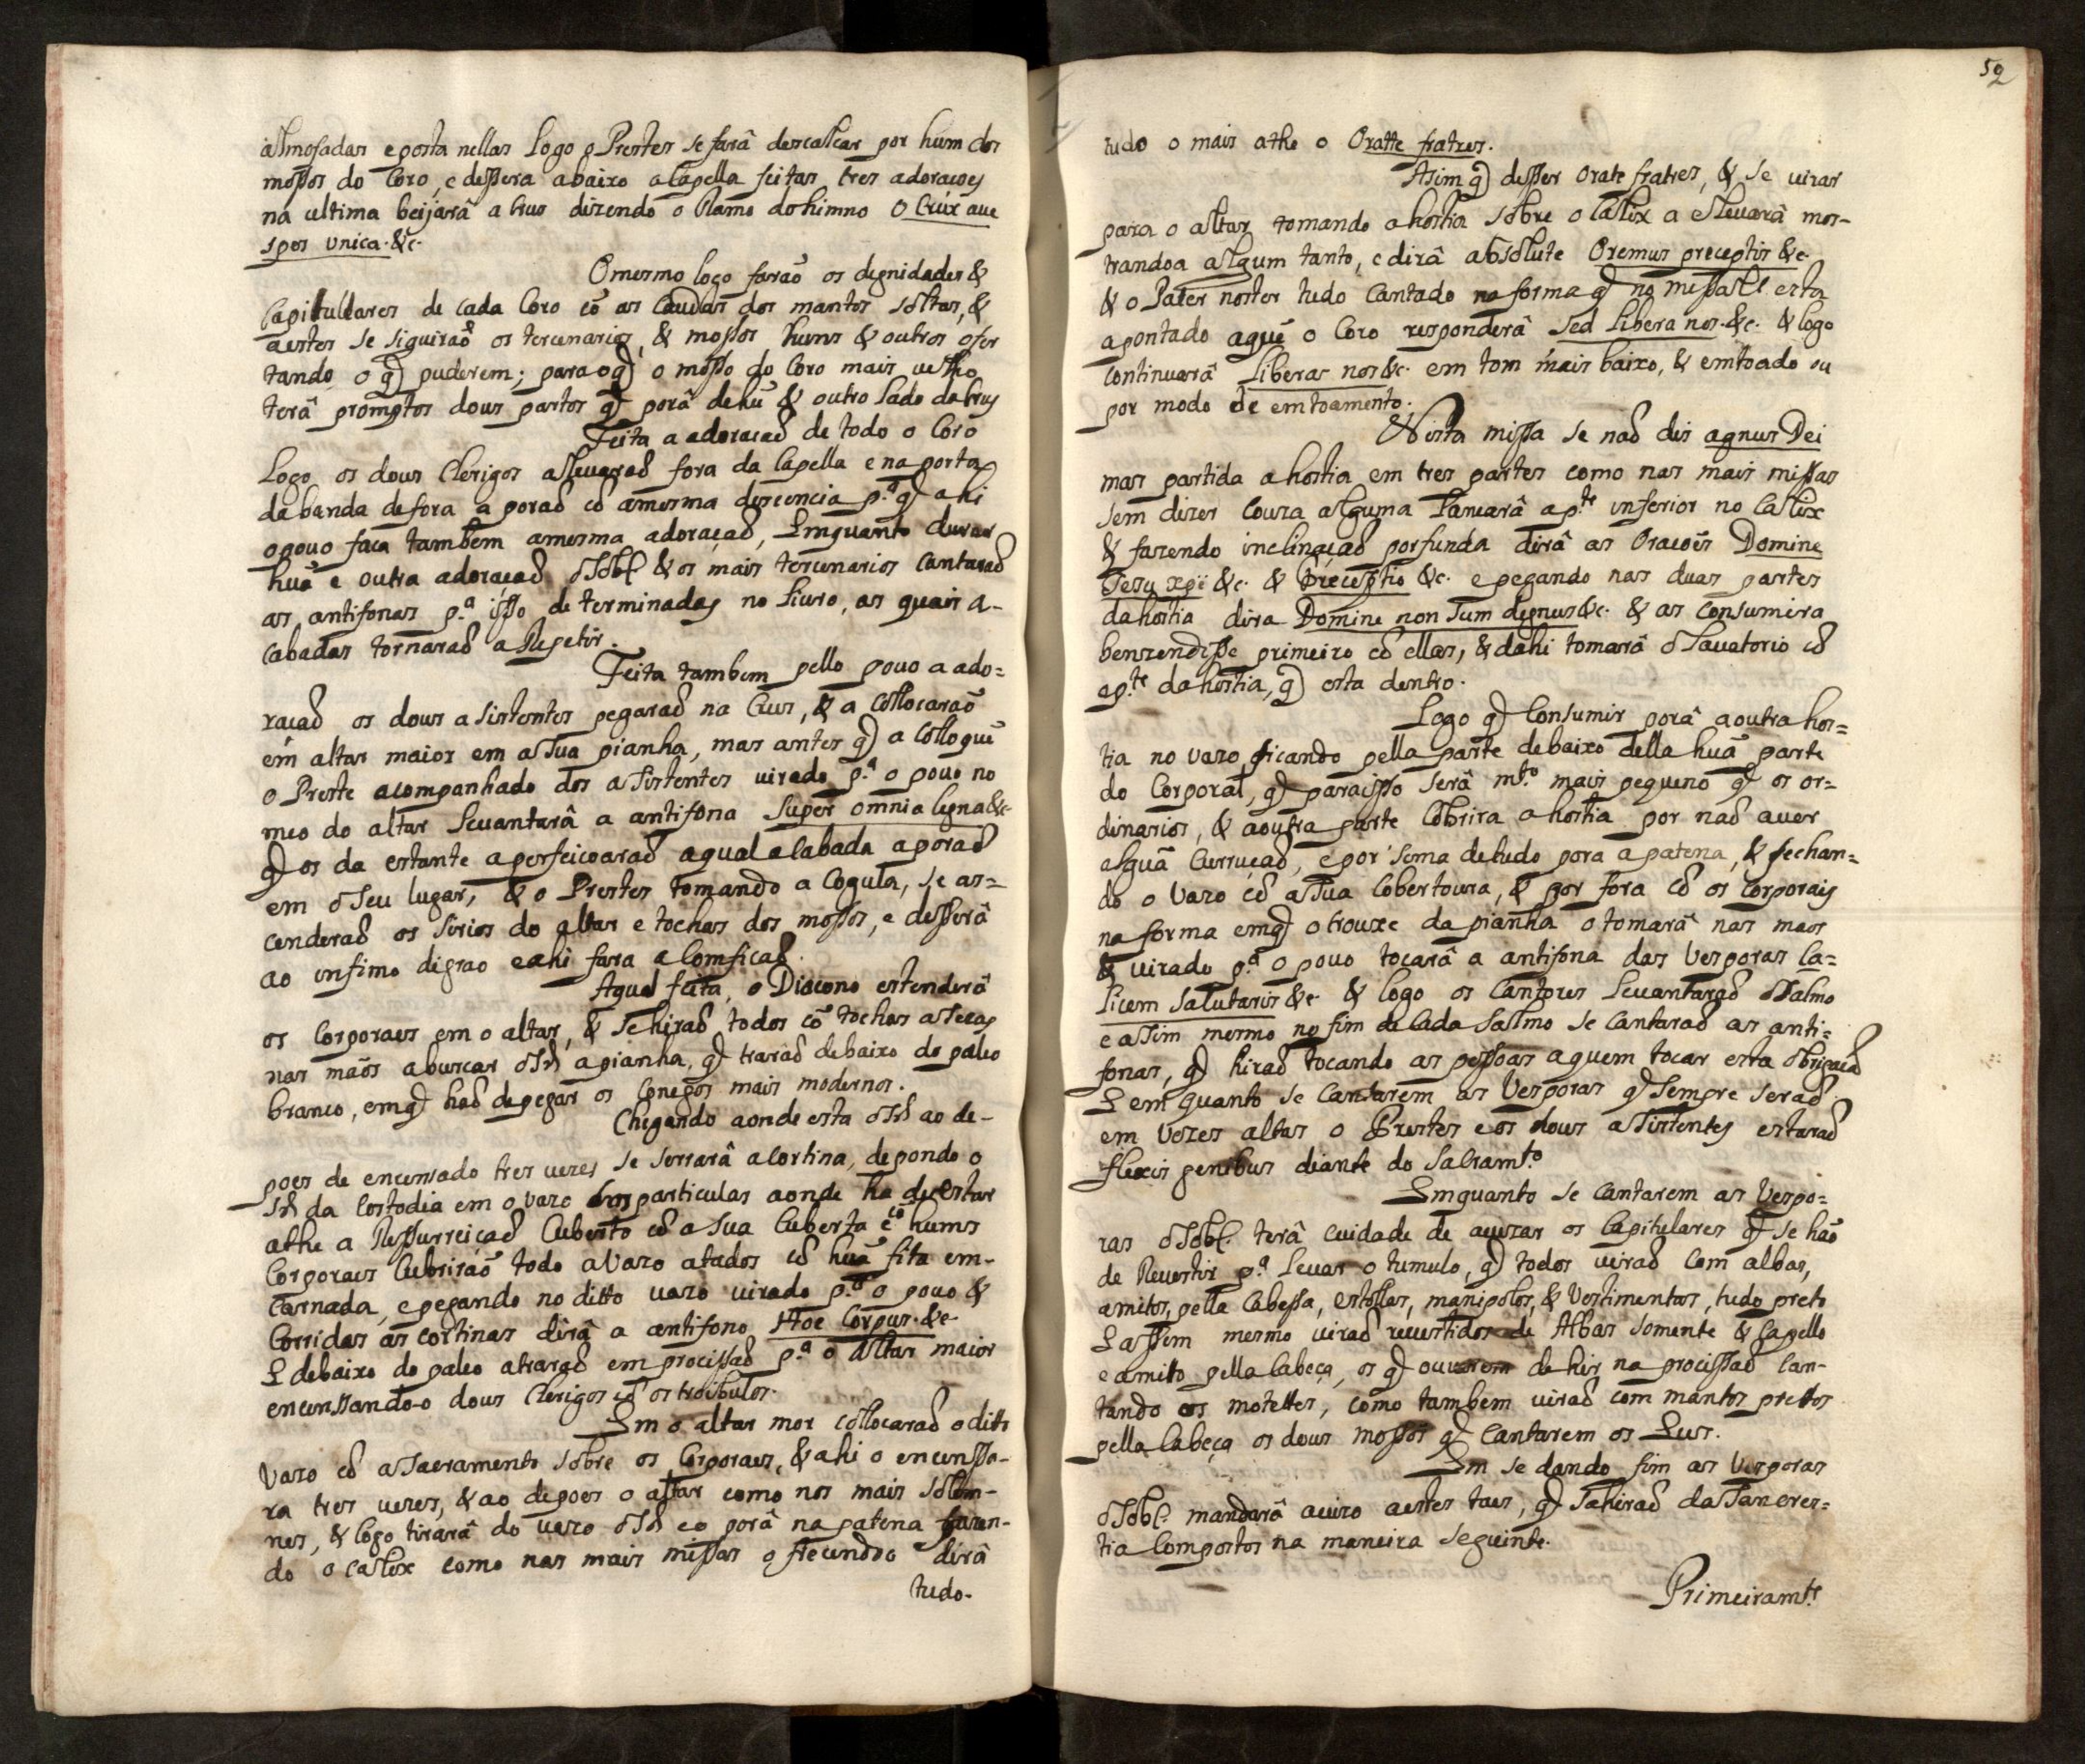 almofadas e posta nellas Logo o Prestes se farâ descalcar por hum dos
mossos do Coro, e dessera abaixo a Capella feitas tres adoracoes
na ultima beijarâ a Crus dizendo o Ramo do himno O Crux aue
spes vnica. &c.
O mesmo logo farão os dignidades &
Capitullares de cada Coro cõ as Caudas dos mantos soltas, &
aestes se siguiraõ os tercenarios, & mossos huns & outros ofer
tando o q) puderem; para o q) o mosso do Coro mais uelho
terâ promptos dous partos q) porâ de hũ & outro lado da Crus
Feita a adoracaõ de todo o Coro
Logo os dous Clerigos a leuaraõ fora da Capella e na porta
da banda de fora a poraõ cõ a mesma descencia p.ª q) ahi
o pouo faca tambem a mesma adoraçaõ, Emquanto durar
huã e outra adoraçaõ o Sobl & os mais tercenarios Cantaraõ
as antifonas p.ª isso determinadas no Liuro, as quais a-
cabadas tornaraõ a Repetir.
Feita tambem pello pouo a ado=
racaõ os dous asistentes pegaraõ na Crus, & a Collocaraõ
em altar maior em a sua pianha, mas antes q) a Colloquẽ
o Preste acompanhado dos asistentes uirado p.ª o pouo no
meo do altar leuantarâ a antifona Super omnia ligna &c
q) os da estante aperfeicoaraõ a qual alabada a poraõ
em o seu lugar, & o Prestes tomando a Cogula, se as=
cenderaõ os sirios do altar e tochas dos mossos, e desserâ
ao infimo digrao e ahi fara a Comficaõ.
A qual feita, o Diacono estenderâ
os Corporaes em o altar, & se hiraõ todos cõ tochas asecas
nas mãos a buscar o Sõr a pianha, q) traraõ debaixo do paleo
branco, em q) haõ de pegar os Conegos mais modernos.
Chegando aonde esta o Sõr ao de-
poes de encensado tres uezes se serrarâ a Cortina, depondo o
Sõr da Costodia em o vazo das particulas aonde ha de estar
athe a Ressurreiçaõ Cuberto cõ a sua Cuberta e cõ huns
Corporaes Cubrirão todo a Vazo atados cõ huã fita em-
carnada, e pegando no ditto uazo uirado p.ª o pouo &
Corridas as cortinas dirâ a antifono Hoc Corpus. &c
E debaixo do paleo atraraõ em procissaõ p.ª o altar maior
encenssando-o dous Clerigos cõ os troibulos.
Em o altar mor collocaraõ o ditto
Vazo cõ a Sacramento sobre os Corporaes, & ahi o encenssa-
ra tres uezes, & ao depoes o altar como nos mais solem-
nes, & logo tirarâ do uazo o Sõr e o porâ na patena fazen-
do o Calix como nas mais missas o secundo dirâ
tudo.
52
tudo o mais athe o Oratte fratres.
Asim q) disser Orate fratres, & se uirar
para o altar tomando a hostia sobre o Calix a eleuarâ mos-
trandoa algum tanto, e dirâ absolute Oremus preceptis &c
& o Pater noster tudo Cantado na forma q) no missall esta
apontado a quẽ o Coro responderâ Sed libera nos. &c. & logo
Continuarâ Liberas nos &c. em tom mais baixo, & emtoado ou
por modo de emtoamento.
Nesta missa se naõ dis agnus Dei
mas partida a hostia em tres partes como nas mais missas
sem dizer Couza alguma Lancarâ a p.te inferior no Calix
& fazendo inclinaçaõ porfunda dirâ as Oracois Domine
Jesu xpẽ &c. & Preceptio &c. e pegando nas duas partes
da hostia dira Domine non sum dignus &c. & as Consumira
benzendosse primeiro cõ ellas, & dahi tomarâ o Lauatorio cõ
a p.te da hostia, q) esta dentro.
Logo q) Consumir porâ a outra hos=
tia no vazo ficando pella parte debaixo della huã parte
do Corporal, q) para isso serâ m.to mais pequeno q) os or=
dinarios, & a outra parte Cobrira a hostia por naõ auer
alguã Curruçaõ, e por sima de tudo pora a patena, & fechan=
do o Vazo cõ a sua Cobertoura, & por fora cõ os Corporais
na forma em q) o trouxe da pianha o tomarâ nas maos
& uirado p.ª o pouo tocarâ a antifona das Vesporas Ca=
licem Salutaris &c. & logo os Cantores leuantaraõ o Salmo
e asim mesmo no fim de Cada Salmo se Cantaraõ as anti=
fonas, q) hiraõ tocando as pessoas a quem tocar esta obrigacaõ
E em quanto se Cantarem as Vesporas q) sempre seraõ
em Vozes altas o Prestes e os dous asistentes estaraõ
flexis genibus diante do Sacram.to
Emquanto se Cantarem as Vespo=
ras o Sobl. terâ cuidado de auizar os Capitulares q) se haõ
de Reuestir p.ª leuar o tumulo, q) todos uiraõ com albas,
amitos pella Cabessa, estollas, manipolos, & Vestimentas, tudo preto
E assem mesmo uiraõ reuestidos de Albas somente & Capello
e amito pella Cabeça, os q) ouuerem de hir na procissaõ Can-
tando os mottetes, como tambem uiraõ com mantos prettos
pella Cabeça os dous mossos q) Cantarem os Eus.
Em se dando fim as Vesporas
o Sobl. mandarâ auizo a estes taes, q) sahiraõ da Sancres=
tia Compostos na maneira seguinte.
Primeiram.te